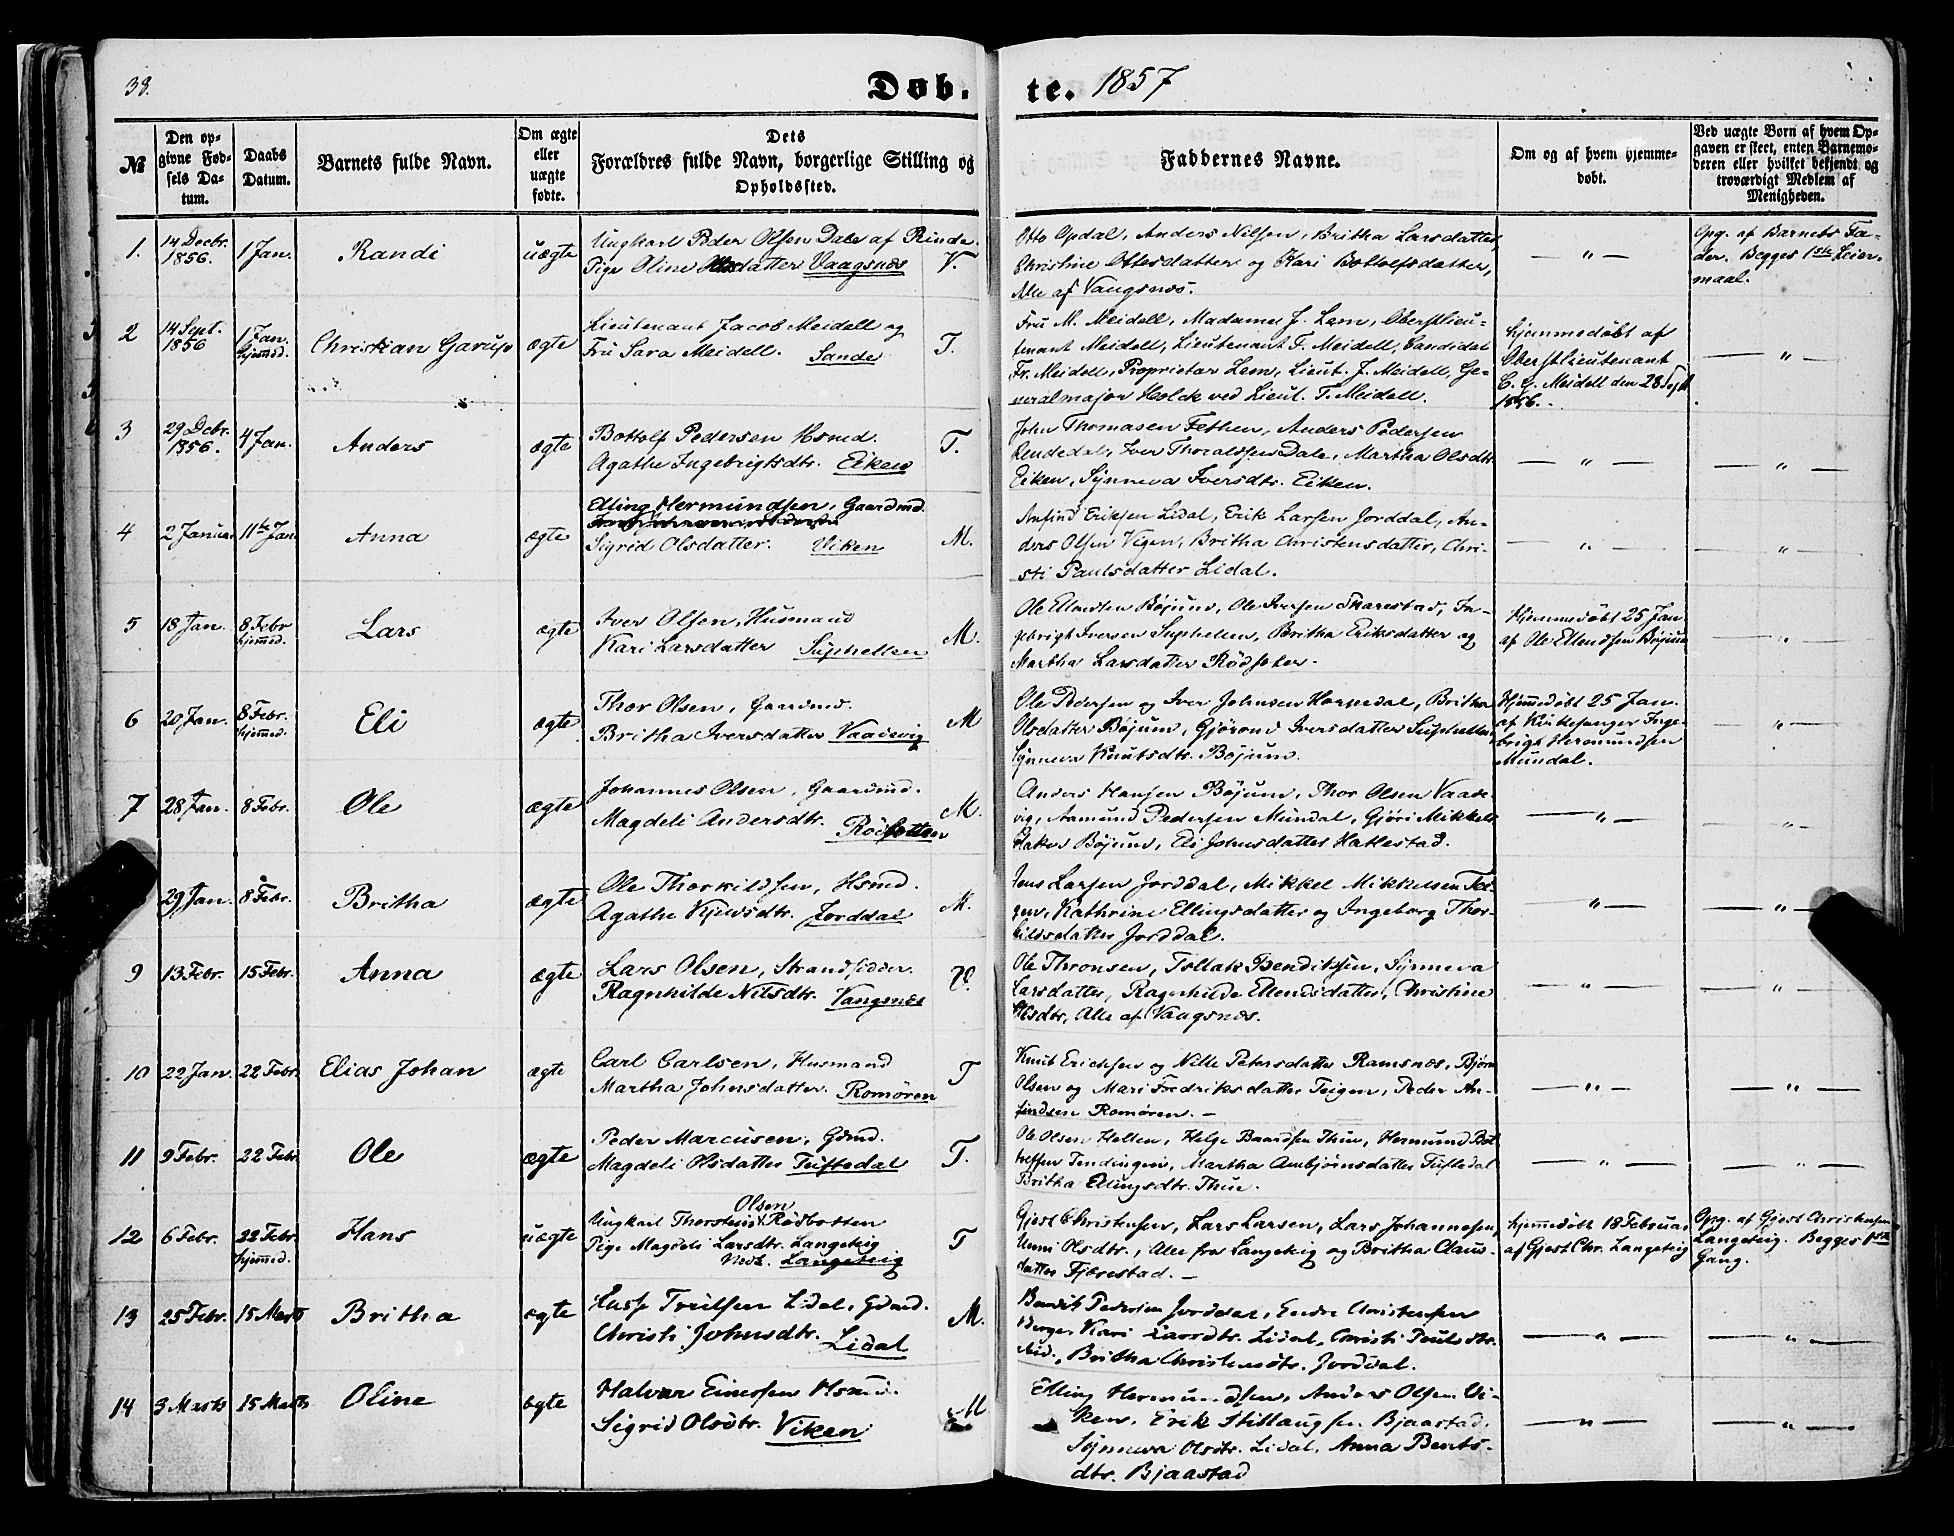 38.
Døb. te. 1857
№
Den opgivne Fødsels Datum.
Daabs Datum.
Barnets fulde Navn.
Om ægte eller uægte fødte.
Dets Forældres fulde Navn, borgerlige Stilling og Opholdssted.
Faddernes Navne.
Om og af hvem hjemmedøbt.
Ved uægte Børn af hvem Opgaven er skeet, enten Barnemoderen eller hvilket bekjendt og troværdigt Medlem af Menigheden.
1. 14 Decbr. 1856. 1 Jan. Randi uægte
Ungkarl Peder Olsen Dale af Rinde.
Pige Oline Olsdatter Vaagsnæs V.
Otto Opdal, Anders Nilsen, Britha Larsdatter,
Christine Ottesdatter og Kari Bottolfsdatter,
Alle af Vangsnæs.
— " —
Opg. af Barnets Fa-
der. Begges 1ste Leier-
maal.
2 14 Sept. 1856 1 Jan. hjemmed. Christian Garup ægte
Lieutenant Jacob Meidell og
Fru Sara Meidell. Sande T.
Fru M. Meidell, Madame J. Lem, Oberstlieu-
tenant Meidell, Lieutenant F. Meidell, Candidat
Fr. Meidell, Proprietær Lem, Lieut. J. Meidell, Ge-
neralmajor Holck ved Lieut. F. Meidell.
hjemmedøbt af
Oberstlieutenant
C. G. Meidell den 28 Sept.
1856.
— " —
3 29 Decbr. 1856. 4 Jan. Anders ægte
Bottolf Pedersen Hsmd.
Agathe Ingebrigtsdtr. Eiken T.
John Thomasen Fethen, Anders Pedersen
Rendedal, Iver Thoraldsen Dale, Martha Olsdtr.
Eiken, Synneva Iversdtr. Eiken.
— " — — " —
4 2 Januar 11te Jan Anna ægte
Elling Hermundsen, Gaardmd.
Sigrid Olsdatter. Viken M.
Anfind Eriksen Lidal, Erik Larsen Jorddal, An-
ders Olsen Vigen, Britha Christensdatter, Chri-
sti Paulsdatter Lidal.
— " — — " —
5 18 Jan. 8 Febr hjemmed. Lars ægte
Iver Olsen, Husmand
Kari Larsdatter Suphellen M.
Ole Ellendsen Bøjum, Ole Iversen Skarestad, In-
gebrigt Iversen Suphellen, Britha Eriksdatter og
Martha Larsdatter Rödseter.
Hjemmedöbt 25 Jan.
af Ole Ellendsen Bøjum
— " —
6 20 Jan. 8 Febr. hjemmed. Eli ægte
Thor Olsen, Gaardmd.
Britha Iversdatter Vaadevig M
Ole Pedersen og Iver Johnsen Horpedal, Britha
Olsdatter Bøjum, Gjörond Iversdatter Suphellen
Synneva Knutsdtr. Bøjum.
Hjemmedøbt 25 Jan.
af Kirkesanger Inge-
brigt Hermundsen
Mundal.
— " —
7 28 Jan. 8 Febr. Ole ægte
Johannes Olsen, Gaardmd.
Magdeli Andersdtr. Rödsetter M.
Anders Hansen Bøjum, Thor Olsen Vaade-
vig, Aamund Pedersen Mundal, Gjöri Mikkels-
datter Bøjum, Eli Johnsdatter Hatlestad.
— " — — " —
29 Jan. 8 Febr. Britha ægte
Ole Thorkildsen, Hsmd.
Agathe Kjelvsdtr. Jorddal M.
Jens Larsen Jorddal, Mikkel Mikkelsen Tei-
gen, Kathrine Ellingsdatter og Ingeborg Thor-
kildsdatter Jorddal.
— " — — " —
9 13 Febr. 15 Febr. Anna ægte
Lars Olsen, Strandsidder.
Ragnhilde Nilsdtr. Vangsnæs V.
Ole Thronsen, Tollak Bendiksen, Synneva
Larsdatter, Ragnhilde Ellendsdatter, Christine
Olsdtr, Alle af Vangsnæs.
— " — — " —
10 22 Jan. 22 Febr. Elias Johan ægte
Carl Carlsen, Husmand
Martha Johnsdatter. Romören T
Knut Erichsen og Nille Petersdatter Ramsnæs, Bjørn
Olsen og Mari Fredriksdatter Teigen, Peder An-
findsen Romören. —
— " — — " —
11 9 Febr. 22 Febr Ole ægte
Peder Marcusen, Gdmd.
Magdeli Olsdatter Tuftedal T.
Ole Olsen Holten, Helge Baardsen Thue, Hermund Bot-
tolfsen Tendingen, Martha Ambjörnsdatter Tuftedal
Britha Ellingsdtr. Thue.
— " — — " —
12 6 Febr. 22 Febr hjemmed. Hans uægte
Ungkarl Thorstein Olsen Rödbotten
Pige Magdeli Larsdtr. Langeteig
Nes. Langeteig T
Gjest Christensen, Lars Larsen, Lars Johannesen,
Unni Olsdtr., Alle fra Langeteig og Britha Claus-
datter Fjærestad. —
hjemmedöbt 18 Februar
af Gjest Chr. Langeteig
Opg. af Gjest Christensen
Langeteig. Begges 1ste
Gang.
13 25 Febr. 15 Marts Britha ægte
Lasse Truilsen Lidal, Gdmd.
Christi Johnsdtr. Lidal M.
Bendik Pedersen Jorddal, Endre Christensen
Berge, Kari Larsdtr. Lidal, Christi Paulsdtr.
ibid., Britha Christensdtr. Jorddal.
— " — — " —
14 3 Marts 15 Marts Oline ægte
Halvar Einersen Hsmd.
Sigrid Olsdtr. Viken M
Elling Hermundsen, Anders Olsen Vi-
ken, Erik Stillaugsen Bjaastad,
Synneva Olsdtr. Lidal, Anna Bents-
dtr. Bjaastad
— " — — " —